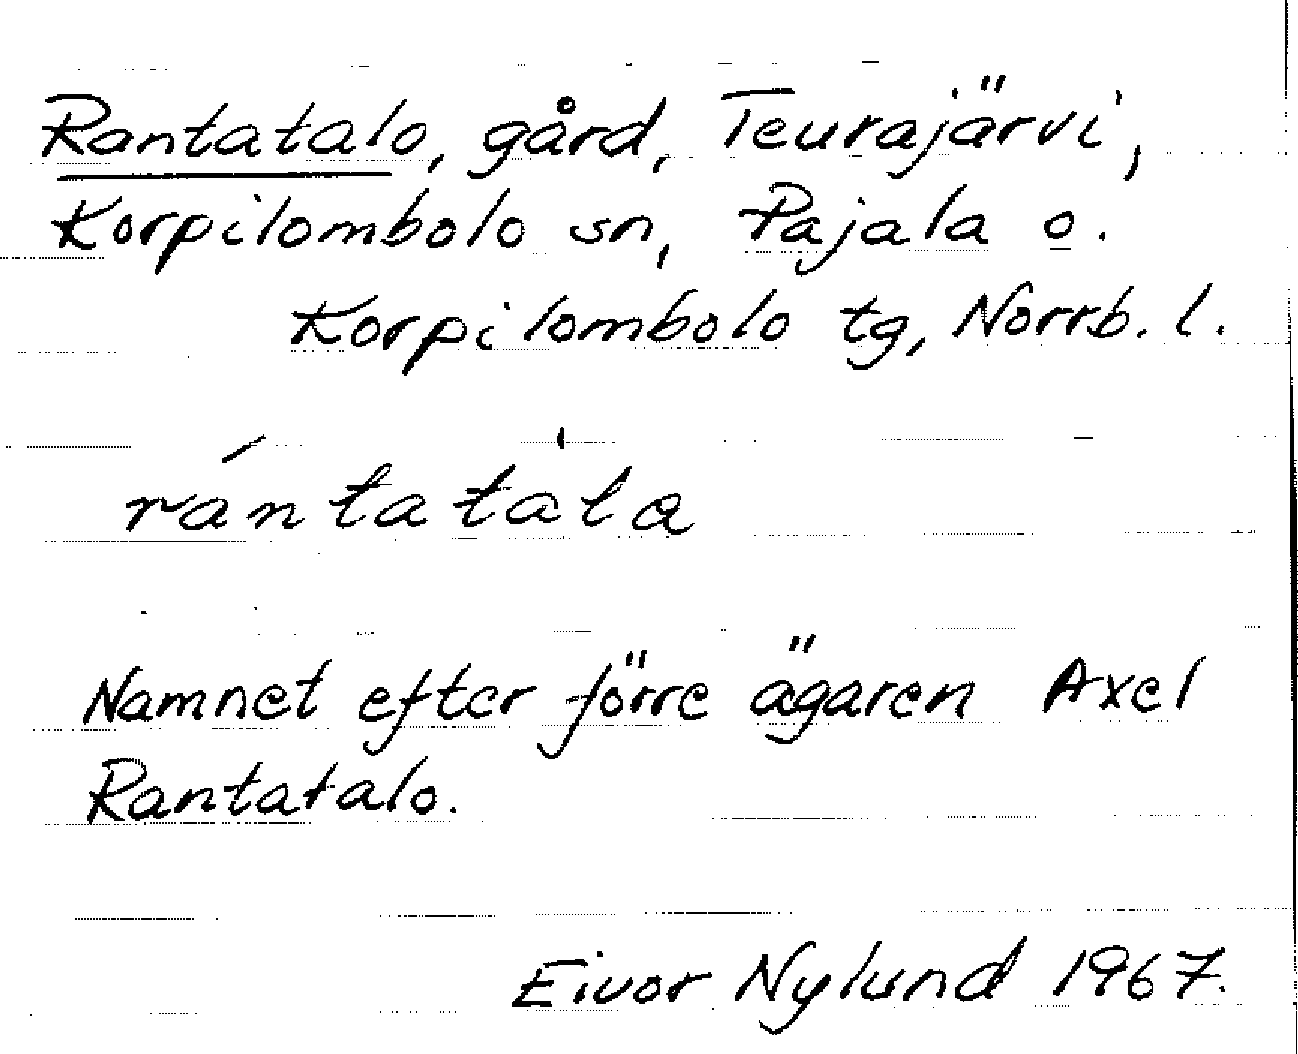 Rantatalo, gård, Teurajärvi,
Korpilombolo sn, Pajala o.
Korpilombolo tg, Norrb. l.
rántatàla
Namnet efter förre ägaren Axel
Rantatalo.
Eivor Nylund 1967.